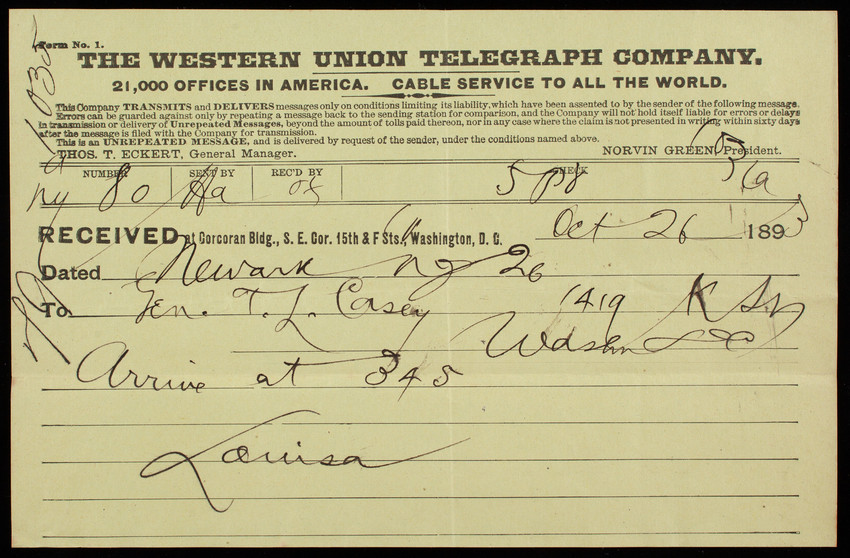 Form No. 1.
THE WESTERN UNION TELEGRAPH COMPANY.
21,000 OFFICES IN AMERICA. CABLE SERVICE TO ALL THE WORLD.
This Company TRANSMITS and DELIVERS messages only on conditions limiting its liability, which have been assented to by the sender of the following message.
Errors can be guarded against only by repeating a message back to the sending station for comparison, and the Company will not hold itself liable for errors or delays
in transmission or delivery of Unrepeated Messages, beyond the amount of tolls paid thereon, nor in any case where the claim is not presented in writing within sixty days
after the message is filed with the Company for transmission.
This is an UNREPEATED MESSAGE, and is delivered by request of the sender, under the conditions named above.
THOS. T. ECKERT, General Manager. NORVIN GREEN, President.
NUMBER SENT BY REC'D BY CHECK
Ny 80 Ha
RECEIVED at Corcoran Bldg., S. E. Cor. 15th & F Sts., Washington, D. C. Oct 26 1893
Dated Newark NJ 26
To Gen. T. L. Casey 1419 K St
Washn DC
Arrive at 345
Louisa